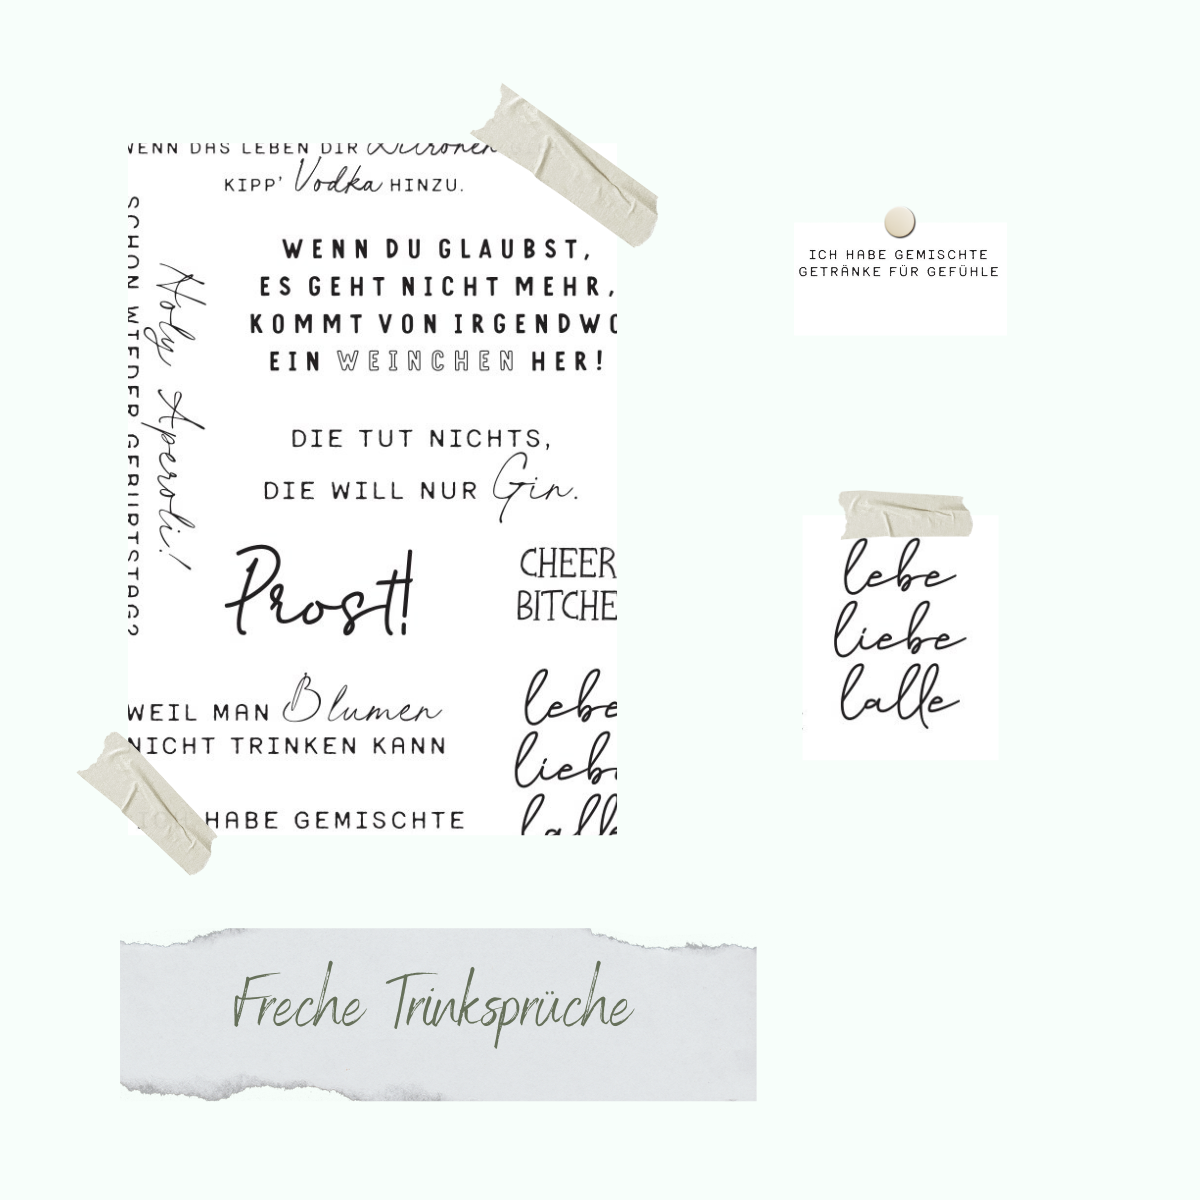 WENN DAS LEBEN DIR Zitronen
KIPP' Vodka HINZU.
SCHON WIEDER GEBURTSTAG?
Holy Aperoli!
WENN DU GLAUBST,
ES GEHT NICHT MEHR,
KOMMT VON IRGENDWO
EIN WEINCHEN HER!
DIE TUT NICHTS,
DIE WILL NUR Gin.
Prost!
CHEER
BITCHE
WEIL MAN Blumen
NICHT TRINKEN KANN
lebe
liebe
lalle
ICH HABE GEMISCHTE
ICH HABE GEMISCHTE
GETRÄNKE FÜR GEFÜHLE
lebe
liebe
lalle
Freche Trinksprüche